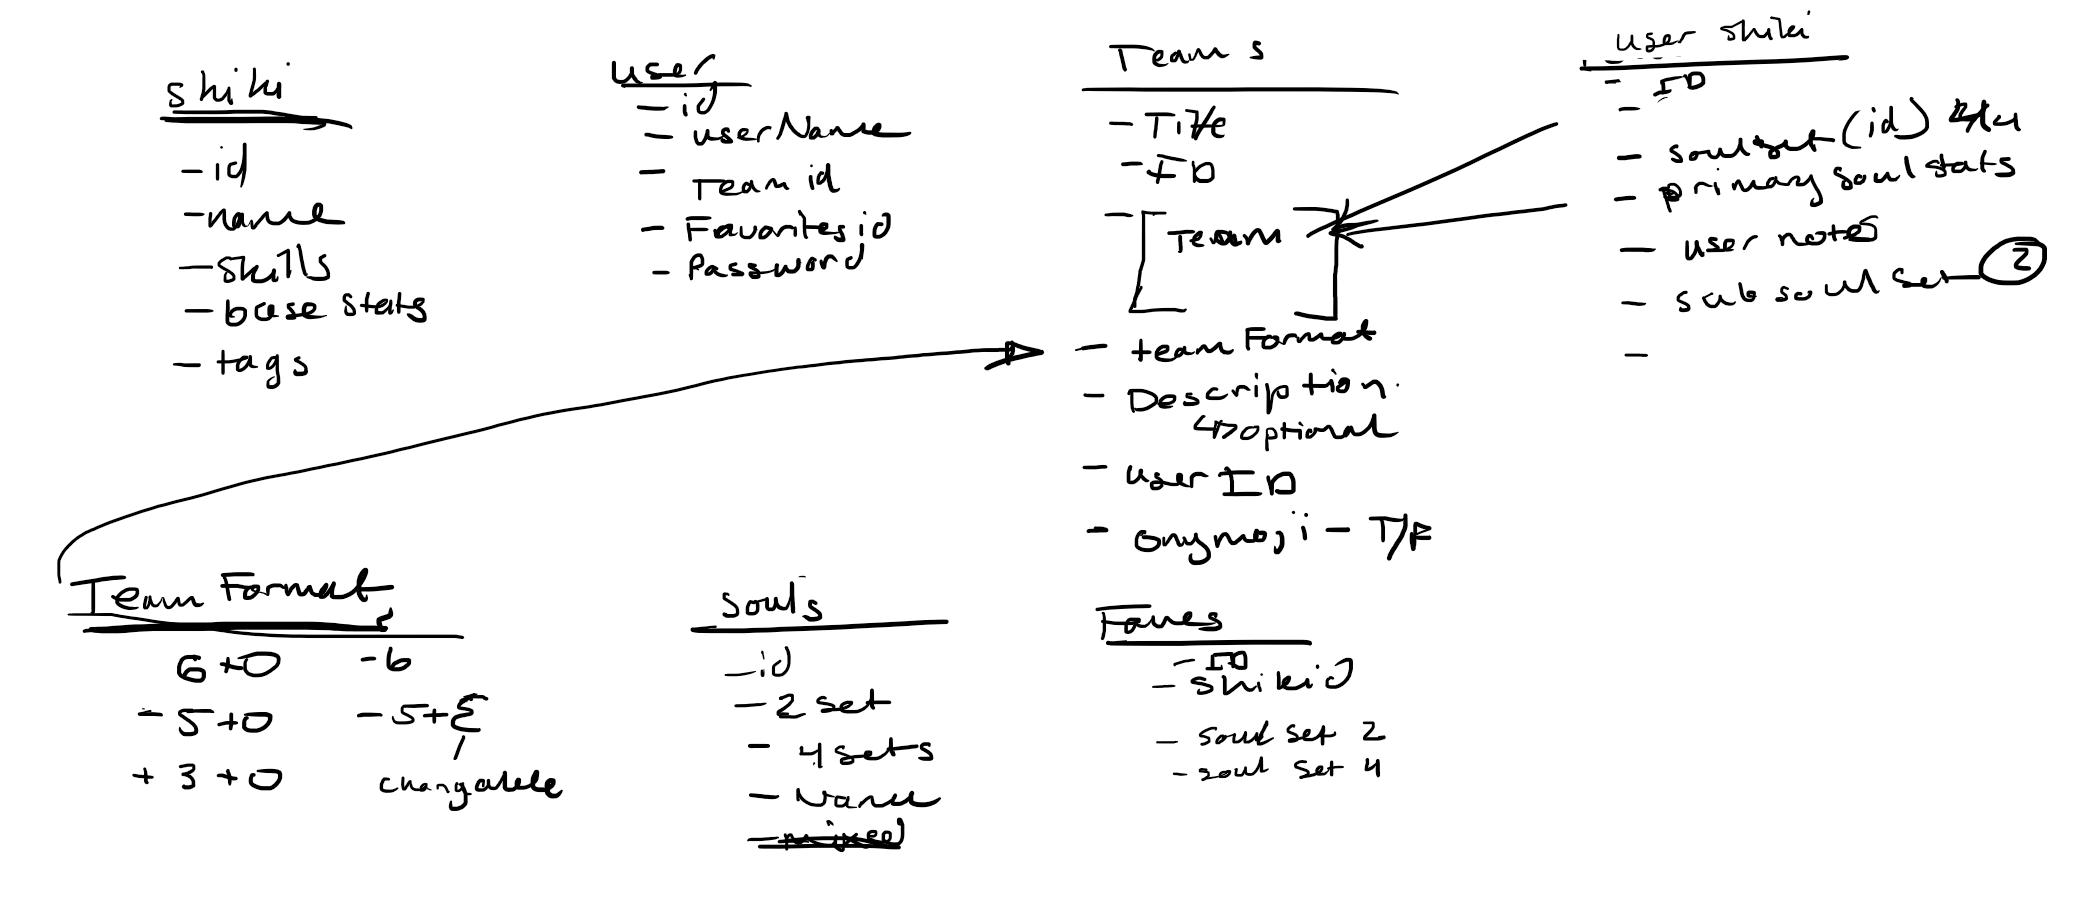 shiki
- id
- name
- skills
- base stats
- tags
user
- id
- userName
- Team id
- Favorites id
- Password
Teams
- Title
- ID
- [Team]
- team Format
- Description
↳ optional
- user ID
- onymoji - T/F
user shiki
- ID
-
- soulset (id) 2/4
- primary soul stats
- user notes
- sub soul set - 2
-
Team Format
6+0 - 6
- 5+0 - 5+
+ 3+0 changable
souls
- id
- 2 set
- 4 sets
- Name
- mixed
Faves
- ID
- shikid
- soul set 2
- soul set 4